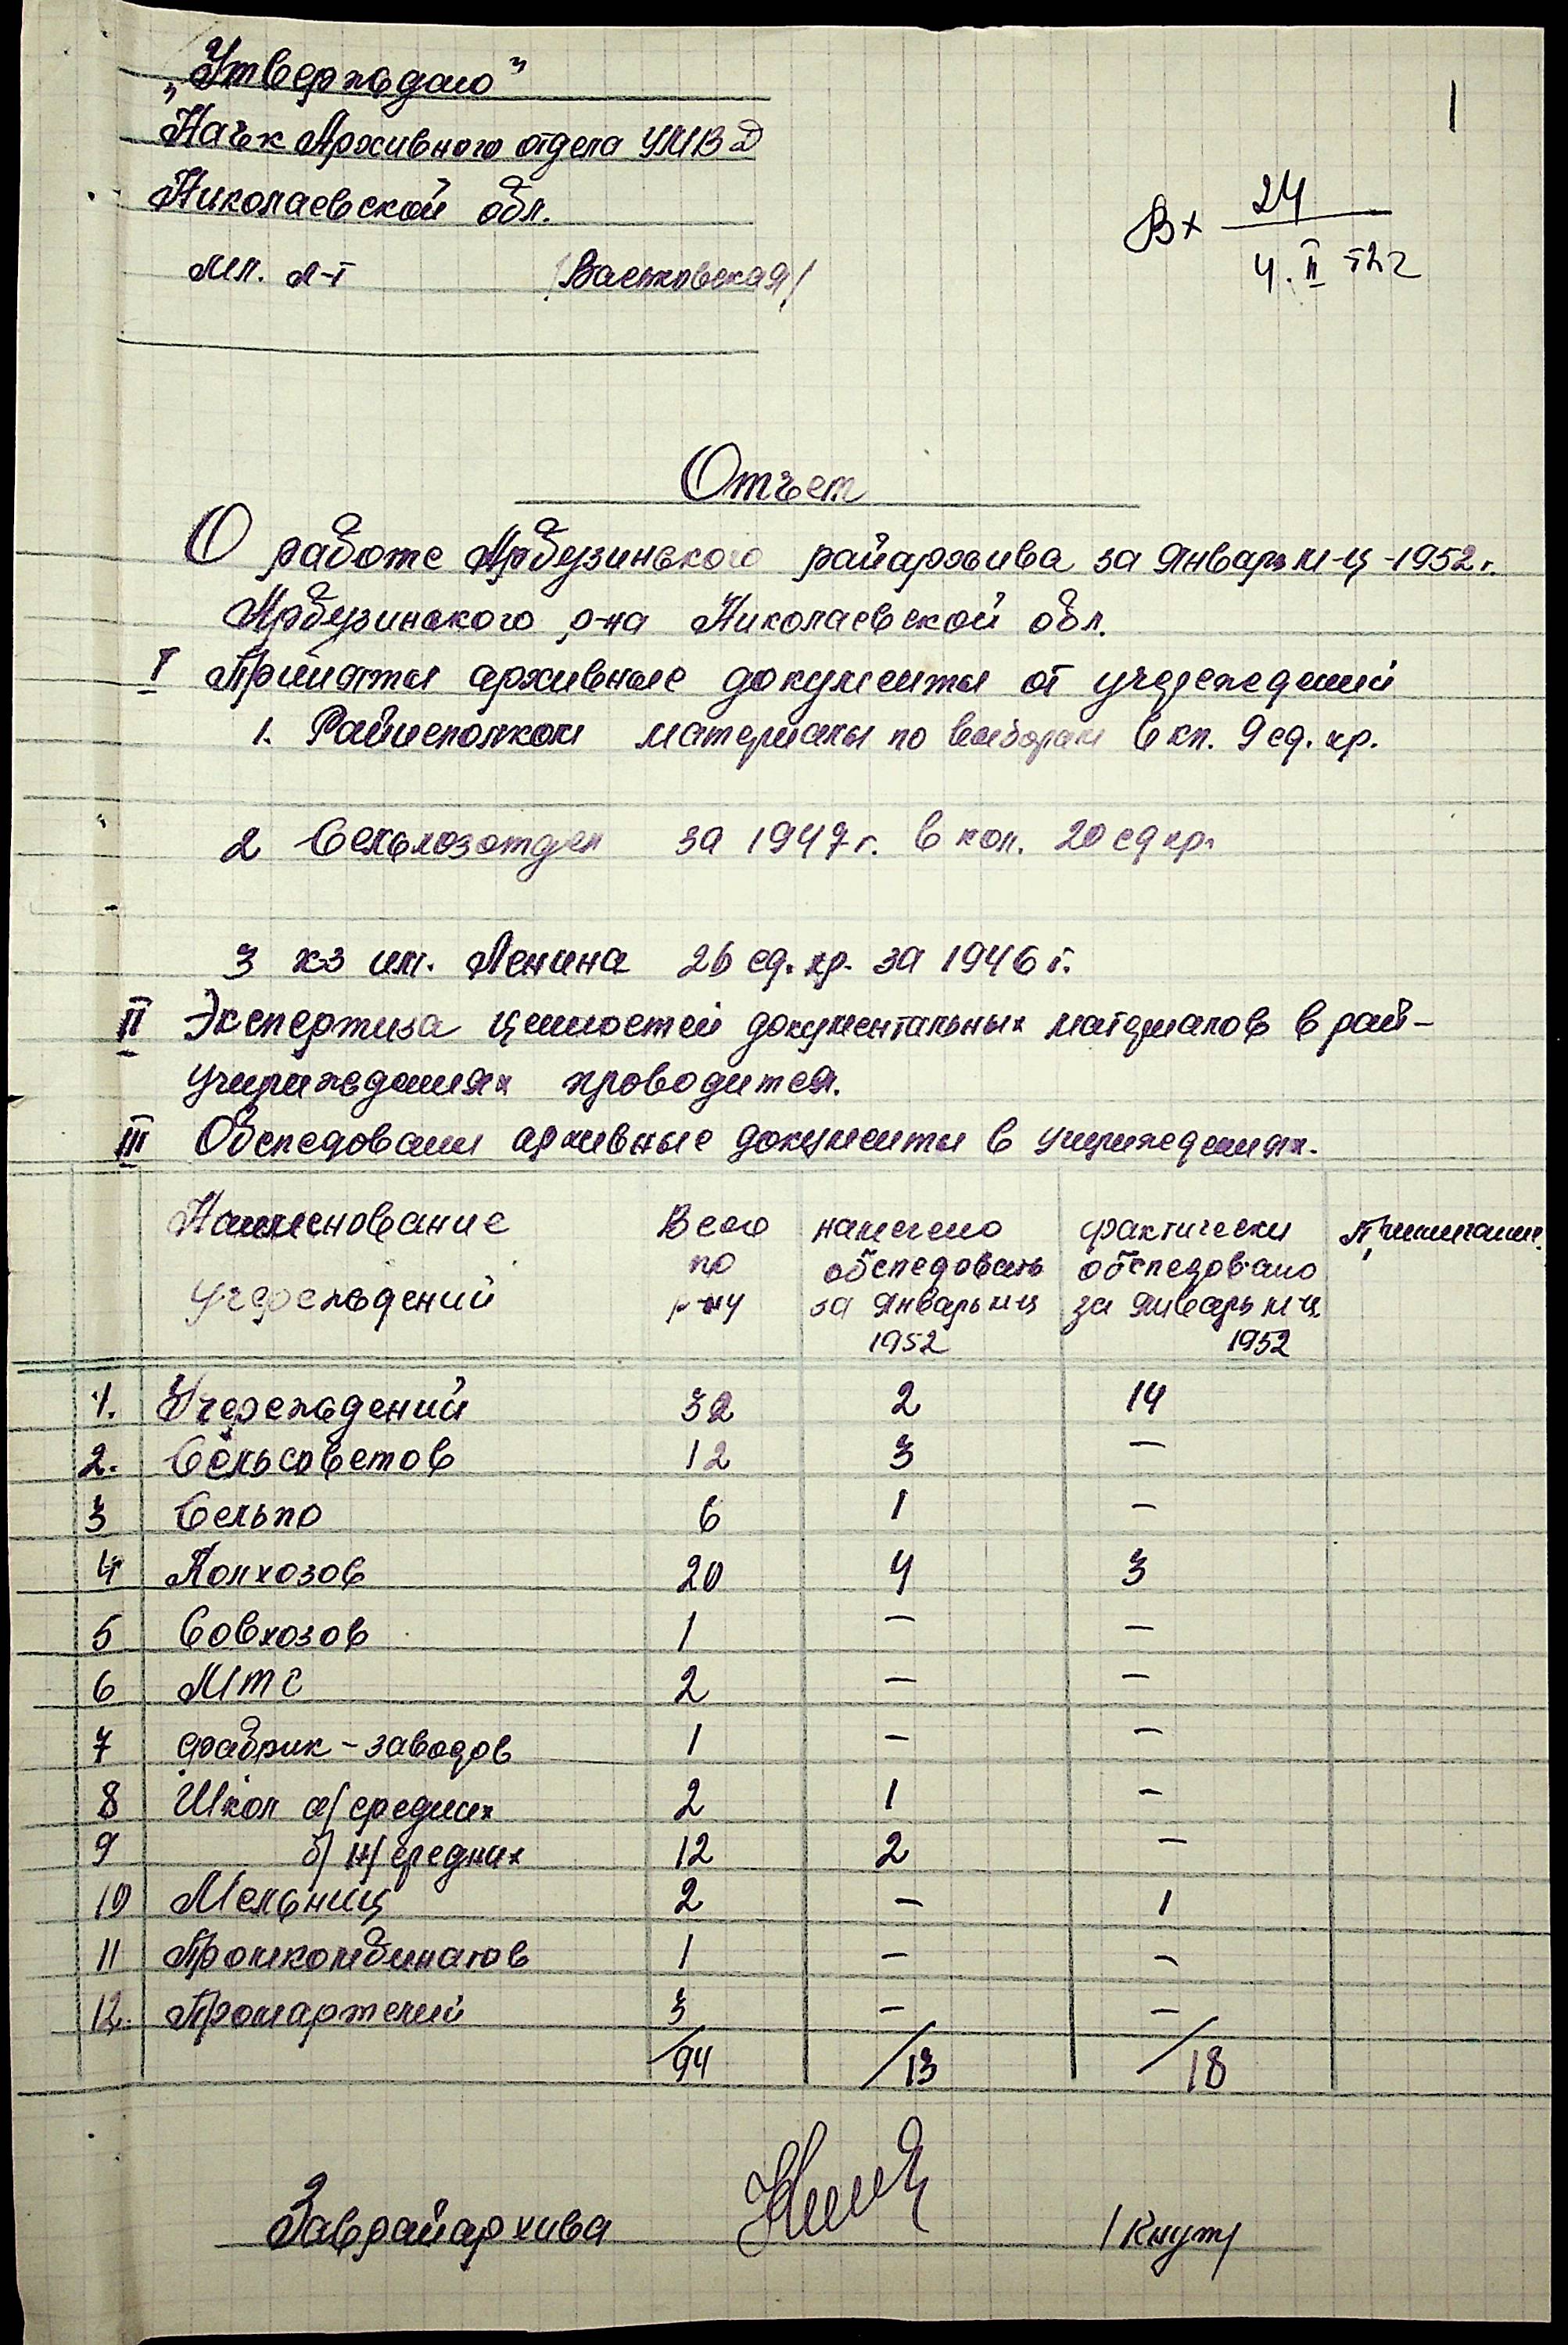 „Утверждаю"
Нач-к Архивного отдела УМВД
1
Николаевской обл.
Вх 24
мл. л-т /Васьковская/
4. II 52 г
Отчет
О работе Арбузинского райархива за январь м-ц -1952 г.
Арбузинского р-на Николаевской обл.
I Приняты архивные документы от учреждений
1. Райисполком материалы по выборам в кл. 9 ед. хр.
2 Сельхозотдел за 1947 г. в кол. 20 ед хр.
3 к-з им. Ленина 26 ед. хр. за 1946 г.
II Экспертиза ценностей документальных материалов в рай-
учириждениях проводится.
III Обследовали архивные документы в учириждениях.
Наименование учереждений Всего по р-ну намечено обследовать за январь м-ц 1952 фактически обследовано за январь м-ц 1952 Примичание
1. Учереждений 32 2 14
2. Сельсоветов 12 3 —
3 Сельпо 6 1 —
4 Колхозов 20 4 3
5 Совхозов 1 — —
6 МТС 2 — —
7 Фабрик-заводов 1 — —
8 Школ а/ средних 2 1 —
9 б/ н/средних 12 2 —
10 Мельниц 2 — 1
11 Промкомбинатов 1 — —
12. Промартелий 3 — —
/94 /13 /18
Заврайархива /Кнут/